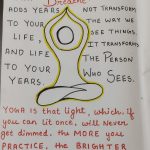 Breathe
ADDS YEARS
TO YOUR
LIFE,
AND LIFE
TO YOUR
YEARS
NOT TRANSFORM
THE WAY WE
SEE THINGS,
IT TRANSFORMS
THE PERSON
WHO SEES.
YOGA IS that LIGHT, which, if
you can lit once, will Never
get dimmed. the MORE you
PRACTICE, the BRIGHTER